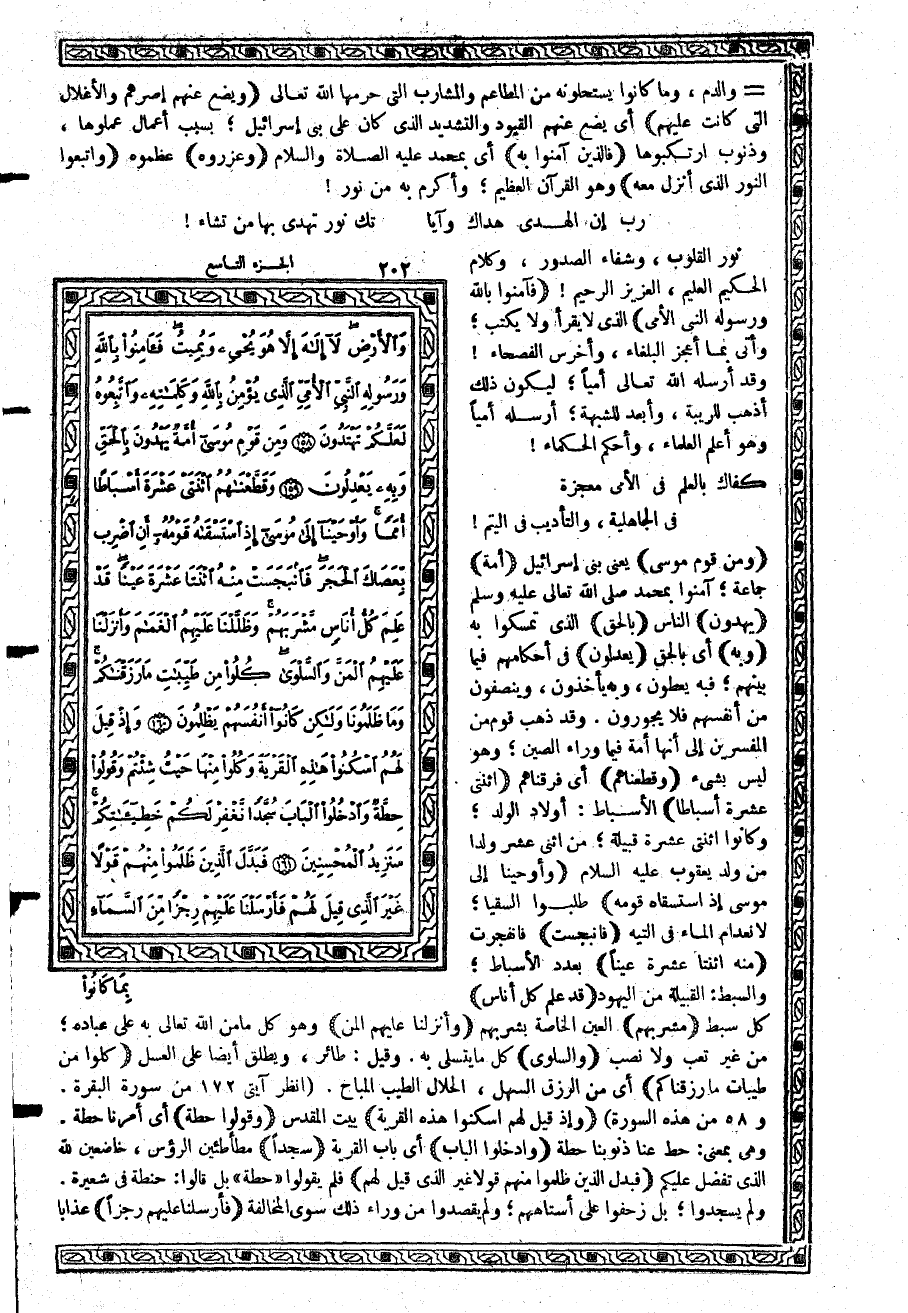 = والدم ، وما كانوا يستحلونه من المطاعم والمشارب التى حرمها الله تعالى (ويضع عنهم إصرهم والأغلال
التى كانت عليهم) أى يضع عنهم القيود والتشديد الذى كان على بنى إسرائيل ؛ بسبب أعمال عملوها ،
وذنوب ارتكبوها (فالذين آمنوا به) أى بمحمد عليه الصلاة والسلام (وعزروه) عظموه (واتبعوا
النور الذى أنزل معه) وهو القرآن العظيم ؛ وأكرم به من نور !
رب إن الهدى هداك وآيا تك نور تهدى بها من تشاء !
نور القلوب ، وشفاء الصدور ، وكلام
الحكيم العليم ، العزيز الرحيم ! (فآمنوا بالله
ورسوله النبى الأمى) الذى لايقرأ ولا يكتب ؛
وأتى بما أعجز البلغاء ، وأخرس الفصحاء !
وقد أرسله الله تعالى أمياً ؛ ليكون ذلك
أذهب للريبة ، وأبعد للشبهة ؛ أرسله أمياً
وهو أعلم العلماء ، وأحكم الحكماء !
كفاك بالعلم فى الأمى معجزة
فى الجاهلية ، والتأديب فى اليتم !
(ومن قوم موسى) يعنى بنى إسرائيل (أمة)
جماعة ؛ آمنوا بمحمد صلى الله تعالى عليه وسلم
(يهدون) الناس (بالحق) الذى تمسكوا به
(وبه) أى بالحق (يعدلون) فى أحكامهم فيما
بينهم ؛ فبه يعطون ، وبه يأخذون ، وينصفون
من أنفسهم فلا يجورون . وقد ذهب قوم من
المفسرين إلى أنها أمة فيما وراء الصين ؛ وهو
ليس بشىء (وقطعناهم) أى فرقناهم (اثنتى
عشرة أسباطا) الأسباط : أولاد الولد ؛
وكانوا اثنتى عشرة قبيلة ؛ من اثنى عشر ولدا
من ولد يعقوب عليه السلام (وأوحينا إلى
موسى إذ استسقاه قومه) طلبوا السقيا ؛
لانعدام الماء فى التيه (فانبجست) فانفجرت
(منه اثنتا عشرة عيناً) بعدد الأسباط ؛
والسبط: القبيلة من اليهود(قد علم كل أناس)
الجزء التاسع ٢٠٢
وَٱلْأَرْضِ لَآ إِلَٰهَ إِلَّا هُوَ يُحْيِۦ وَيُمِيتُ فَـَٔامِنُوا۟ بِٱللَّهِ
وَرَسُولِهِ ٱلنَّبِىِّ ٱلْأُمِّىِّ ٱلَّذِى يُؤْمِنُ بِٱللَّهِ وَكَلِمَٰتِهِۦ وَٱتَّبِعُوهُ
لَعَلَّكُمْ تَهْتَدُونَ ﴿١٥٨﴾ وَمِن قَوْمِ مُوسَىٰٓ أُمَّةٌ يَهْدُونَ بِٱلْحَقِّ
وَبِهِۦ يَعْدِلُونَ ﴿١٥٩﴾ وَقَطَّعْنَٰهُمُ ٱثْنَتَىْ عَشْرَةَ أَسْبَاطًا
أُمَمًا وَأَوْحَيْنَآ إِلَىٰ مُوسَىٰٓ إِذِ ٱسْتَسْقَىٰهُ قَوْمُهُۥٓ أَنِ ٱضْرِب
بِّعَصَاكَ ٱلْحَجَرَ فَٱنۢبَجَسَتْ مِنْهُ ٱثْنَتَا عَشْرَةَ عَيْنًا قَدْ
عَلِمَ كُلُّ أُنَاسٍ مَّشْرَبَهُمْ وَظَلَّلْنَا عَلَيْهِمُ ٱلْغَمَٰمَ وَأَنزَلْنَا
عَلَيْهِمُ ٱلْمَنَّ وَٱلسَّلْوَىٰ كُلُوا۟ مِن طَيِّبَٰتِ مَا رَزَقْنَٰكُمْ
وَمَا ظَلَمُونَا وَلَٰكِن كَانُوٓا۟ أَنفُسَهُمْ يَظْلِمُونَ ﴿١٦٠﴾ وَإِذْ قِيلَ
لَهُمُ ٱسْكُنُوا۟ هَٰذِهِ ٱلْقَرْيَةَ وَكُلُوا۟ مِنْهَا حَيْثُ شِئْتُمْ وَقُولُوا۟
حِطَّةٌ وَٱدْخُلُوا۟ ٱلْبَابَ سُجَّدًا نَّغْفِرْ لَكُمْ خَطِيٓـَٰٔتِكُمْ
سَنَزِيدُ ٱلْمُحْسِنِينَ ﴿١٦١﴾ فَبَدَّلَ ٱلَّذِينَ ظَلَمُوا۟ مِنْهُمْ قَوْلًا
غَيْرَ ٱلَّذِى قِيلَ لَهُمْ فَأَرْسَلْنَا عَلَيْهِمْ رِجْزًا مِّنَ ٱلسَّمَآءِ
بِمَا كَانُوا۟
كل سبط (مشربهم) العين الخاصة بشربهم (وأنزلنا عليهم المن) وهو كل مامن الله تعالى به على عباده ؛
من غير تعب ولا نصب (والسلوى) كل مايتسلى به . وقيل : طائر ، ويطلق أيضا على العسل (كلوا من
طيبات ما رزقناكم) أى من الرزق السهل ، الحلال الطيب المباح . (انظر آيتى ١٧٢ من سورة البقرة .
و ٥٨ من هذه السورة) (وإذ قيل لهم اسكنوا هذه القرية) بيت المقدس (وقولوا حطة) أى أمرنا حطة .
وهى بمعنى: حط عنا ذنوبنا حطة (وادخلوا الباب) أى باب القرية (سجداً) مطأطئين الرؤس ، خاضعين لله
الذى تفضل عليكم (فبدل الذين ظلموا منهم قولا غير الذى قيل لهم) فلم يقولوا «حطة» بل قالوا: حنطة فى شعيرة .
ولم يسجدوا ؛ بل زحفوا على أستاههم ؛ ولم يقصدوا من وراء ذلك سوى المخالفة (فأرسلنا عليهم رجزاً) عذابا